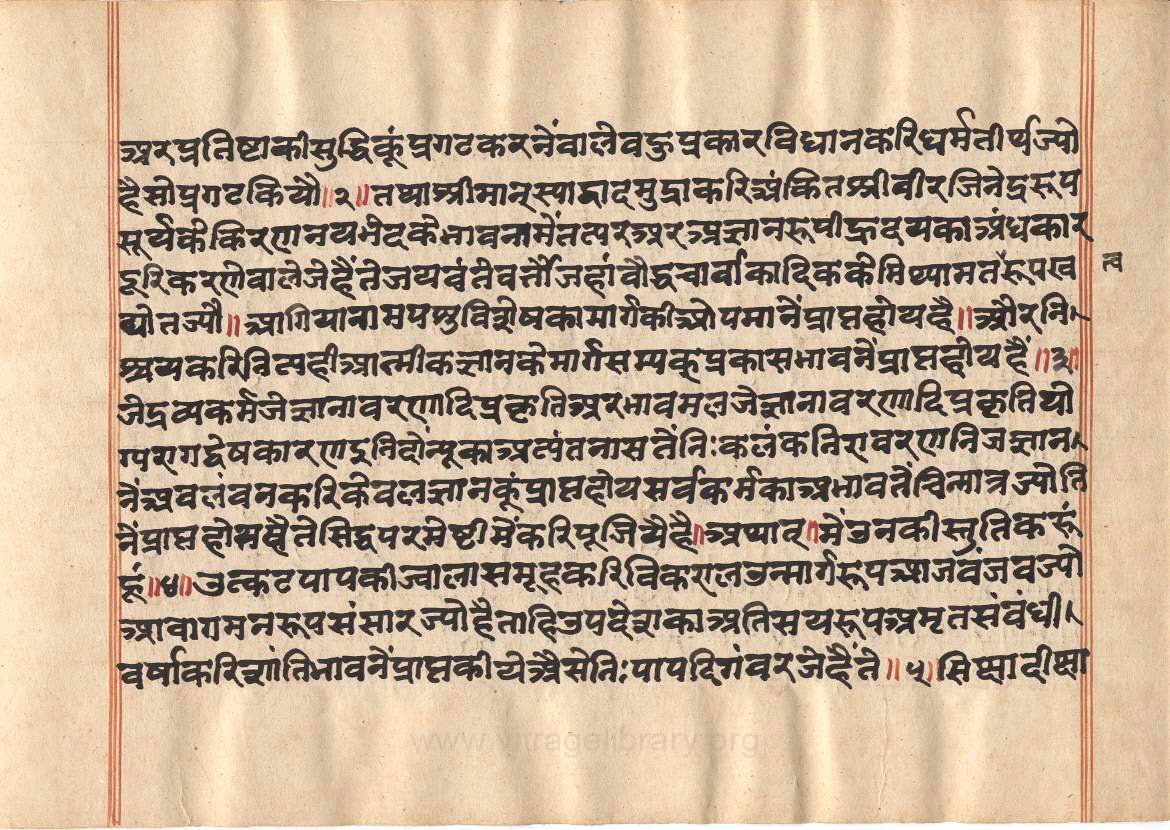 अरप्रतिष्टाकीसुद्धिकूंप्रगटकरनेंवालेवक्तुप्रकारविधानकरिधर्मतीर्थज्यो
हैसोप्रगटकियौ॥२॥तथाश्रीमान्स्याद्वादमुद्राकरिअंकितश्रीवीरजिनेंद्ररूप
सूर्यकेकिरणनयभेदकैभावनामेंतत्परअरअज्ञानरूपीह्रदयकाअंधकार
दूरिकरणेवालेजेहैंतेजयवंतेवर्त्तौजहांवौद्धचार्वाकादिककेमिथ्यामतरूपख
द्योतज्यौ॥आगियानामपशुविशेषकामार्गकीओपमानेंप्राप्तहोयहै॥औरनि
श्चयकरिनित्यहीआत्मीकज्ञानकैमार्गसम्यक्प्रकासभावनेंप्राप्तहोयहैं॥३॥
जेद्रव्यकर्मजेज्ञानावरणादिप्रकृतिअरभावमलजेज्ञानावरणादिप्रकृतियो
ग्यरागद्वेषकारणइनिदोन्यूकाअत्यंतनासतेंनिःकलंकनिरावरणनिजज्ञान
नेंअवलंवनकरिकेवलज्ञानकूंप्राप्तहोयसर्वकर्मकाअभावतैंचिन्मात्रज्योति
नेंप्राप्तहोतेसिद्धपरमेष्टीमैंकरिपूजियैहै॥अथात्॥मेंउनकीस्तुतिकरूं
हूं॥४॥उत्कटपापकीज्वालासमूहकरिविकरालउन्मार्गरूपआजवंजवज्यौ
आवागमनरूपसंसारज्योहैताहिउपदेशकाअतिसयरूपअमृतसंवंधी
वर्षाकरिशांतिभावनेंप्राप्तकीयेअैसेनिःपापदिगंवरजेहैंते॥५॥सिष्यादीष्या
त्व
www.vitragelibrary.org